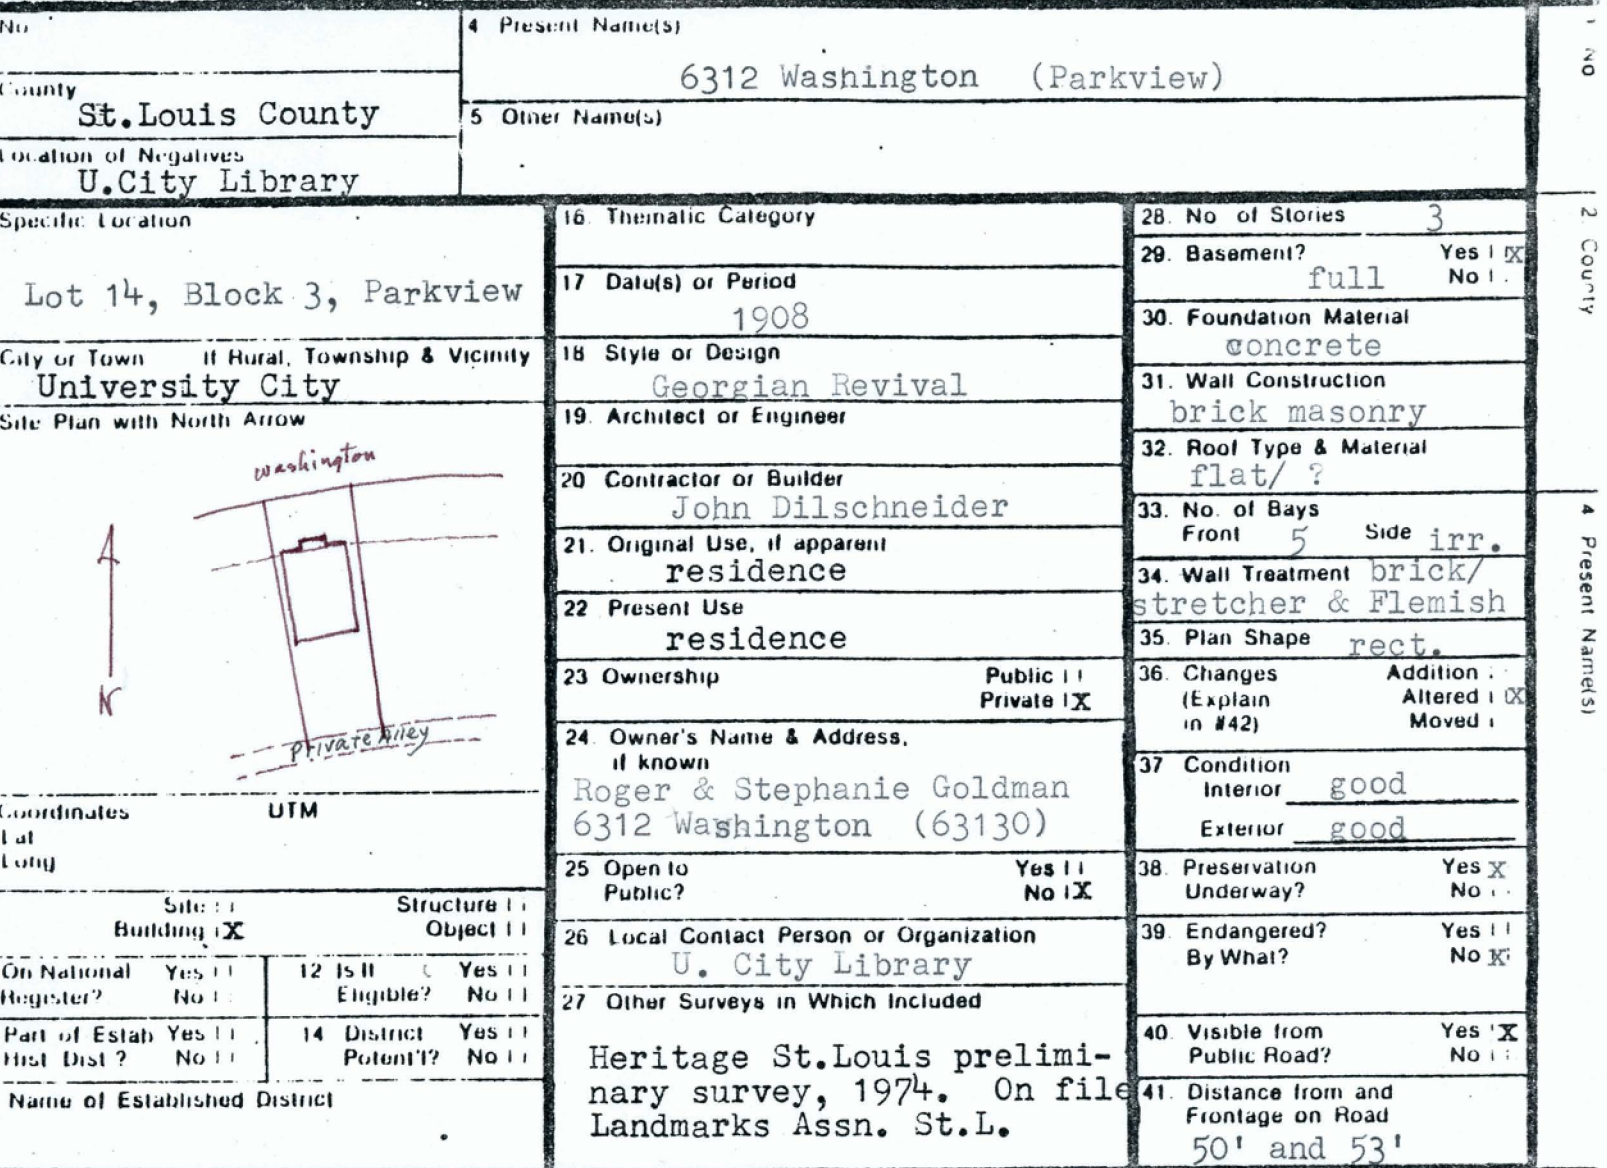 No
4 Present Name(s)
6312 Washington (Parkview)
County
St.Louis County
5 Other Name(s)
Location of Negatives
U.City Library
Specific Location
Lot 14, Block 3, Parkview
City or Town If Rural, Township & Vicinity
University City
Site Plan with North Arrow
Washington
N
Private Alley
Coordinates UTM
Lat
Long
Site Structure
Building X Object
On National Yes
Register? No
12 Is It Yes
Eligible? No
Part of Estab Yes
Hist Dist ? No
14 District Yes
Potent'l? No
Name of Established District
16. Thematic Category
17 Date(s) or Period
1908
18 Style or Design
Georgian Revival
19. Architect or Engineer
20 Contractor or Builder
John Dilschneider
21. Original Use, if apparent
residence
22 Present Use
residence
23 Ownership Public
Private X
24. Owner's Name & Address,
if known
Roger & Stephanie Goldman
6312 Washington (63130)
25 Open to Yes
Public? No X
26 Local Contact Person or Organization
U. City Library
27 Other Surveys in Which Included
Heritage St.Louis prelimi-
nary survey, 1974. On file
Landmarks Assn. St.L.
28. No of Stories 3
29. Basement? Yes X
full No
30. Foundation Material
concrete
31. Wall Construction
brick masonry
32. Roof Type & Material
flat/ ?
33. No. of Bays
Front 5 Side irr.
34. Wall Treatment brick/
stretcher & Flemish
35. Plan Shape rect.
36. Changes Addition
(Explain Altered X
in #42) Moved
37 Condition
Interior good
Exterior good
38. Preservation Yes X
Underway? No
39. Endangered? Yes
By What? No X
40. Visible from Yes X
Public Road? No
41. Distance from and
Frontage on Road
50' and 53'
1 No
2 County
4 Present Name(s)